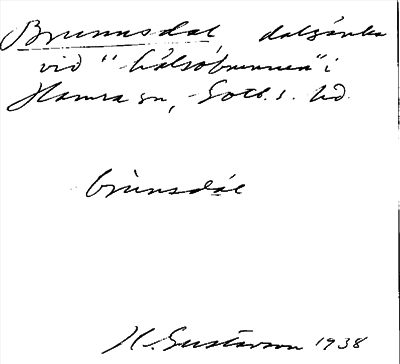 Brunnsdal, dalsänka
vid "hälsobrunnen" i
Hamra sn, Gotl. s. hd.
brùnsdāl
H. Gustavson 1938